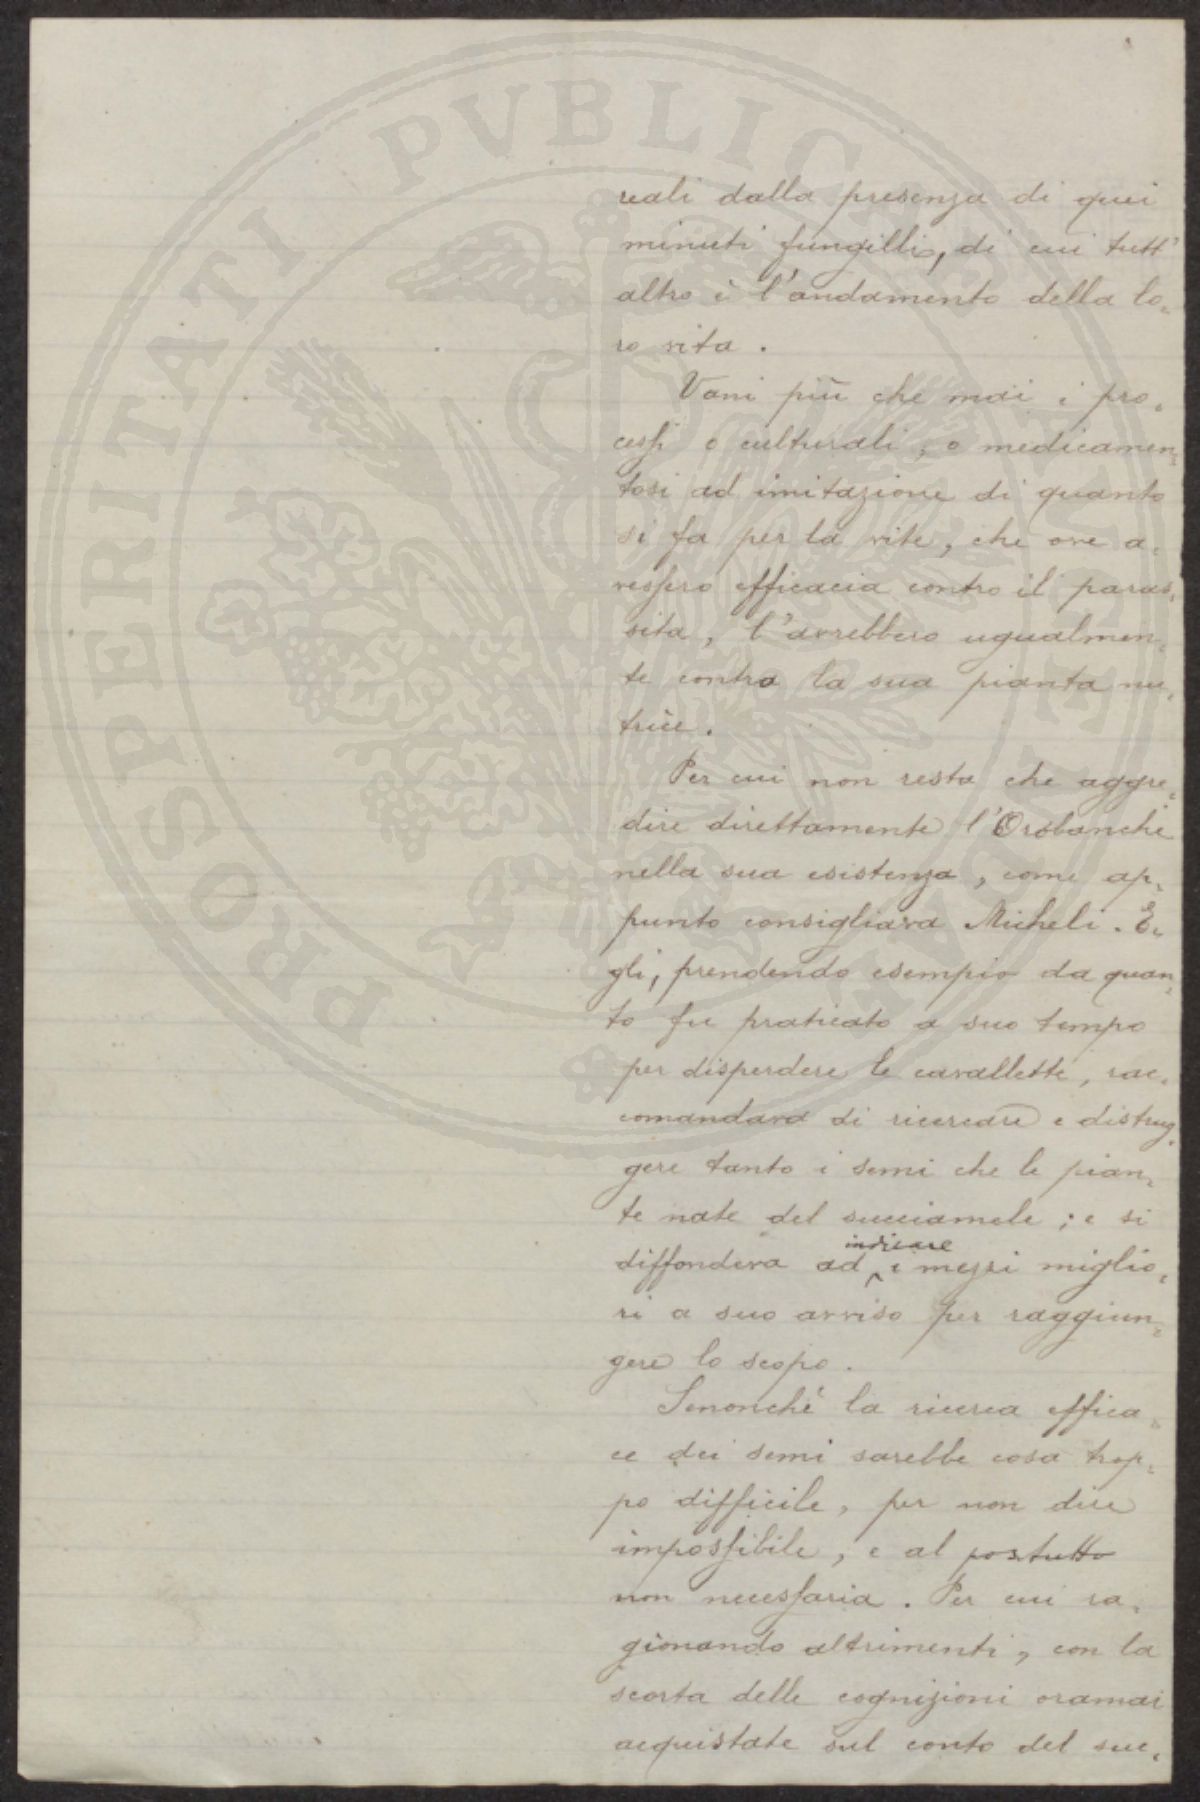 PROSPERITATI PVBLICAE AVGENDAE
reali dalla presenza di quei
minuti fungilli, di cui tutt'
altro è l'andamento della lo,
ro vita.
Vani più che mai i pro,
cessi o culturali, o medicamen,
tosi ad imitazione di quanto
si fa per la vite, che ove a,
vessero efficacia contro il paras,
sita, l'avrebbero ugualmen,
te contro la sua pianta nu,
trice.
Per cui non resta che aggre,
dire direttamente l'Orobanche
nella sua esistenza, come ap,
punto consigliava Micheli. E,
gli, prendendo esempio da quan,
to fu praticato a suo tempo
per disperdere le cavallette, rac,
comandava di ricercare e distrug,
gere tanto i semi che le pian,
te nate del succiamele; e si
indicare
diffondeva ad i mezzi miglio,
ri a suo avviso per raggiun,
gere lo scopo.
Senonchè la ricerca effica,
ce dei semi sarebbe cosa trop,
po difficile, per non dire
impossibile, e al postutto
non necessaria. Per cui ra,
gionando altrimenti, con la
scorta delle cognizioni oramai
acquistate sul conto del suc,